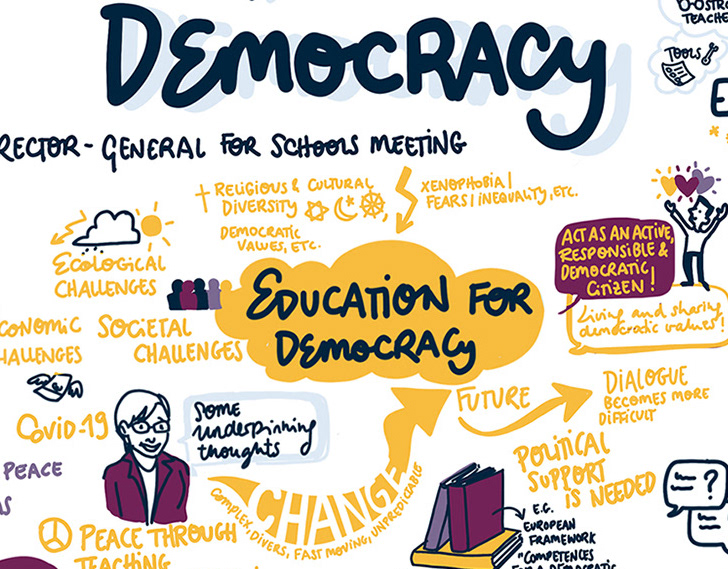 DEMOCRACY
RECTOR-GENERAL FOR SCHOOLS MEETING
TEACHE
TOOLS
RELIGIOUS & CULTURAL
DIVERSITY
DEMOCRATIC
VALUES, ETC.
XENOPHOBIA/
FEARS/INEQUALITY, ETC.
ECOLOGICAL
CHALLENGES
CONOMIC
HALLENGES
SOCIETAL
CHALLENGES
EDUCATION FOR
DEMOCRACY
ACT AS AN ACTIVE,
RESPONSIBLE &
DEMOCRATIC
CITIZEN!
Living and sharing
democratic values!
COVID-19
SOME
underpinning
thoughts
CHANGE
COMPLEX, DIVERS, FAST MOVING, UNPREDICABLE
FUTURE
DIALOGUE
BECOMES MORE
DIFFICULT
POLITICAL
SUPPORT
IS NEEDED
?
E.G.
EUROPEAN
FRAMEWORK
"COMPETENCES
FOR A DEMOCRATIC
PEACE
PEACE THROUGH
TEACHING